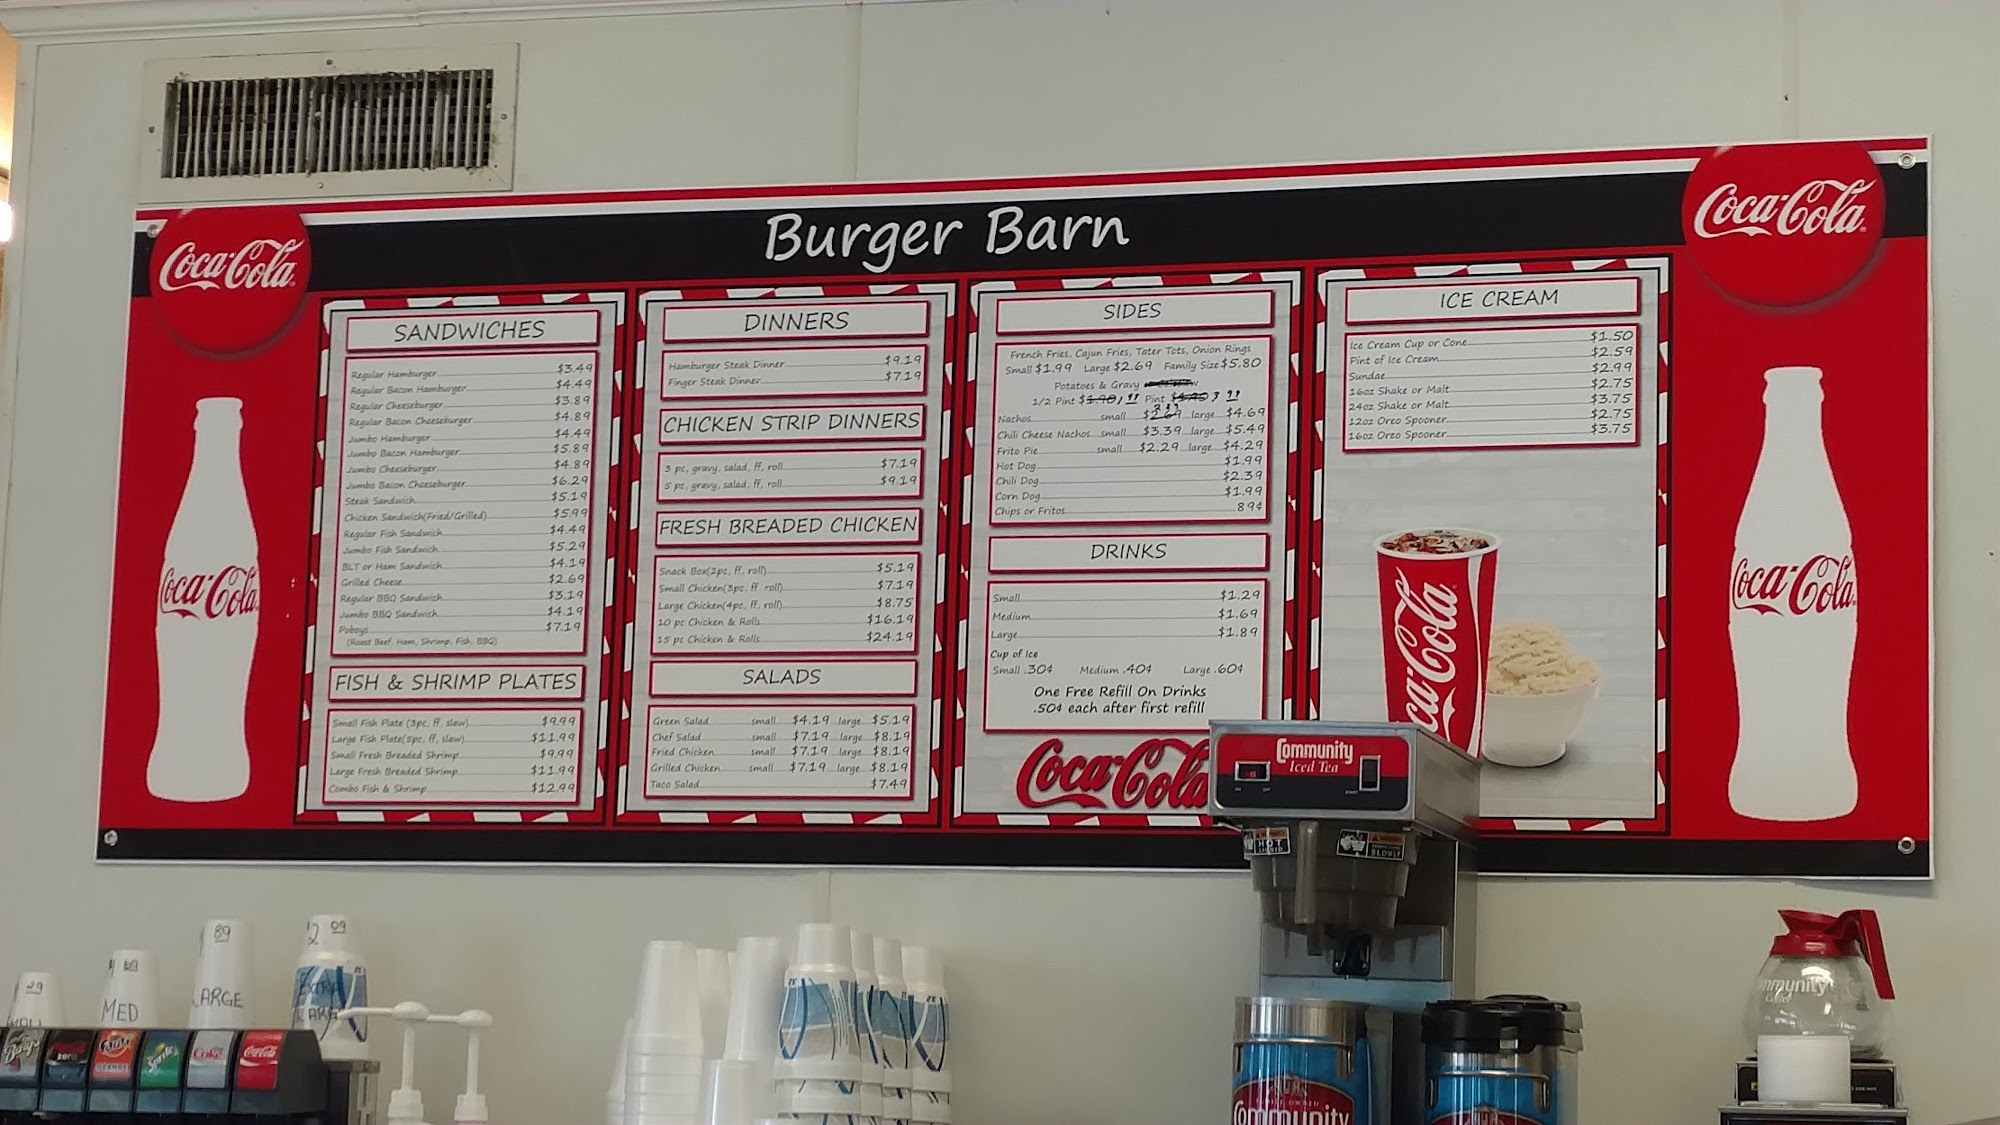 Burger Barn
Coca-Cola
Coca-Cola
SANDWICHES
Regular Hamburger $3.49
Regular Bacon Hamburger $4.49
Regular Cheeseburger $3.89
Regular Bacon Cheeseburger $4.89
Jumbo Hamburger $4.49
Jumbo Bacon Hamburger $5.89
Jumbo Cheeseburger $4.89
Jumbo Bacon Cheeseburger $6.29
Steak Sandwich $5.19
Chicken Sandwich(Fried/Grilled) $5.99
Regular Fish Sandwich $4.49
Jumbo Fish Sandwich $5.29
BLT or Ham Sandwich $4.19
Grilled Cheese $2.69
Regular BBQ Sandwich $3.19
Jumbo BBQ Sandwich $4.19
Poboys $7.19
(Roast Beef, Ham, Shrimp, Fish, BBQ)
FISH & SHRIMP PLATES
Small Fish Plate (3pc, ff, slaw) $9.99
Large Fish Plate(5pc, ff, slaw) $11.99
Small Fresh Breaded Shrimp $9.99
Large Fresh Breaded Shrimp $11.99
Combo Fish & Shrimp $12.99
DINNERS
Hamburger Steak Dinner $9.19
Finger Steak Dinner $7.19
CHICKEN STRIP DINNERS
3 pc, gravy, salad, ff, roll $7.19
5 pc, gravy, salad, ff, roll $9.19
FRESH BREADED CHICKEN
Snack Box(2pc, ff, roll) $5.19
Small Chicken(3pc, ff, roll) $7.19
Large Chicken(4pc, ff, roll) $8.75
10 pc Chicken & Rolls $16.19
15 pc Chicken & Rolls $24.19
SALADS
Green Salad small $4.19 large $5.19
Chef Salad small $7.19 large $8.19
Fried Chicken small $7.19 large $8.19
Grilled Chicken small $7.19 large $8.19
Taco Salad $7.49
SIDES
French Fries, Cajun Fries, Tater Tots, Onion Rings
Small $1.99 Large $2.69 Family Size $5.80
Potatoes & Gravy
1/2 Pint $1.90 Pint
Nachos small large $4.69
Chili Cheese Nachos small $3.39 large $5.49
Frito Pie small $2.29 large $4.29
Hot Dog $1.99
Chili Dog $2.39
Corn Dog $1.99
Chips or Fritos 89¢
DRINKS
Small $1.29
Medium $1.69
Large $1.89
Cup of Ice
Small .30¢ Medium .40¢ Large .60¢
One Free Refill On Drinks
.50¢ each after first refill
Coca-Cola
ICE CREAM
Ice Cream Cup or Cone $1.50
Pint of Ice Cream $2.59
Sundae $2.99
16oz Shake or Malt $2.75
24oz Shake or Malt $3.75
12oz Oreo Spooner $2.75
16oz Oreo Spooner $3.75
Coca-Cola
Coca-Cola
Community
Iced Tea
HOT
LIQUID
SLOWLY
MED
89
ARGE
2 09
EXTRA
LARGE
Barq's
zero
Fanta
ORANGE
Sprite
Coke
Coca-Cola
Community
Community
mmunity
Coffee